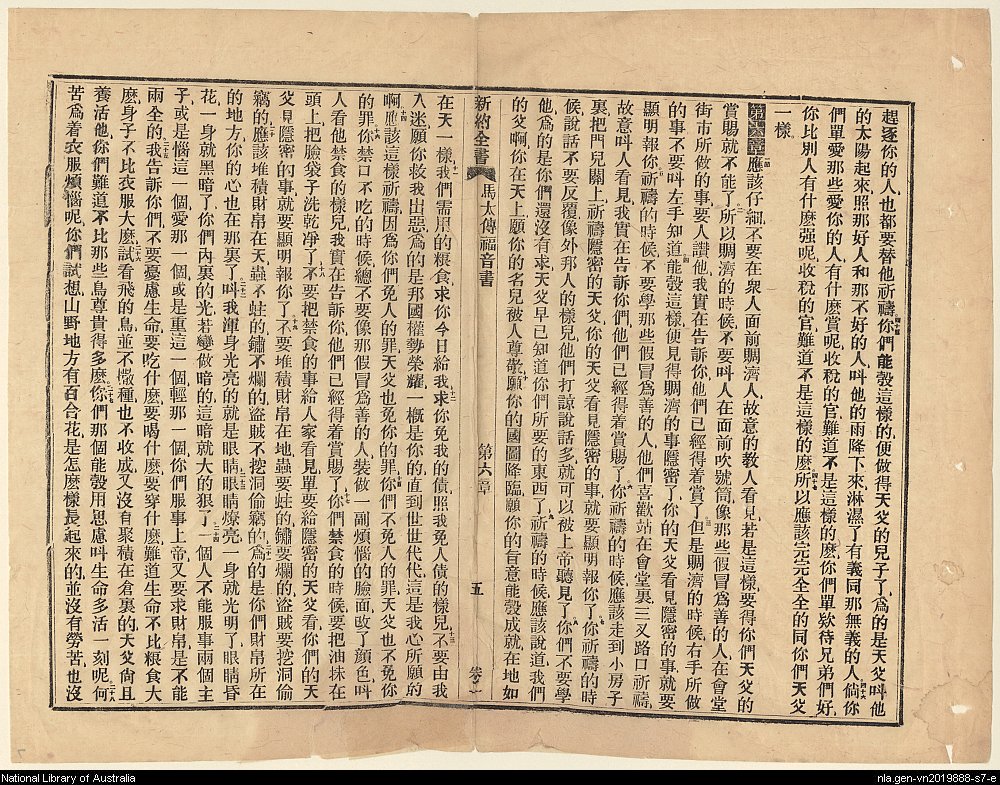 趕逐你的人、也都要替他祈禱、你們能彀這樣的、便做得天父的兒子了、爲的是天父叫他
的太陽起來、照那好人和那不好的人、叫他的雨降下來、淋濕了有義同那無義的人、倘你
們單愛那些愛你的人、有什麽賞呢、收稅的官、難道不是這樣的麽、你們單欵待兄弟們好、
你比別人有什麽强呢、收稅的官、難道不是這樣的麽、所以應該完完全全的、同你們天父
一樣、
第六章 應該仔細、不要在衆人面前賙濟人、故意的教人看見、若是這樣、要得你們天父的
賞賜、就不能了、所以賙濟的時候、不要叫人在面前吹號筒、像那些假冒爲善的人、在會堂
街市所做的事、要人讚他、我實在告訴你、他們已經得着賞了、但是賙濟的時候、右手所做
的事、不要叫左手知道、能彀這樣、便見得賙濟的事隱密了、你的天父看見隱密的事、就要
顯明報你、祈禱的時候、不要學那些假冒爲善的人、他們喜歡站在會堂裏、三叉路口祈禱、
故意叫人看見、我實在告訴你、他們已經得着賞賜了、你祈禱的時候、應該走到小房子
裏、把門兒關上、祈禱隱密的天父、你的天父看見隱密的事、就要顯明報你了、你祈禱的時
候、說話不要反覆、像外邦人的樣兒、他們打諒說話多、就可以被上帝聽見了、你們不要學
他、爲的是你們還沒有求、天父早已知道你們所要的東西了、祈禱的時候、應該說道、我們
的父啊、你在天上、願你的名兒被人尊敬、願你的國圖降臨、願你的旨意能彀成就、在地如
新約全書 馬太傳福音書 第六章 五 卷之一
在天一樣、我們需用的粮食、求你今日給我、求你免我的債、照我免人債的樣兒、不要由我
入迷、願你救我出惡、爲的是那國權勢榮耀、一槪是你的、直到世世代代、這是我心所願的
啊、應該這樣祈禱、因爲你們免人的罪、天父也免你的罪、你們不免人的罪、天父也不免你
的罪、你禁口不吃的時候、總不要像那假冒爲善的人、裝做一副煩惱的臉面、改了顏色、叫
人看他禁食的樣兒、我實在告訴你、他們已經得着賞賜了、你們禁食的時候、要把油抹在
頭上、把臉袋子洗乾凈了、不要把禁食的事給人家看見、單要給隱密的天父看、你們的天
父見隱密的事、就要顯明報你了、不要堆積財帛在地、蟲要蛀的、鏽要爛的、盜賊要挖洞偷
竊的、應該堆積財帛在天、蟲不蛀的、鏽不爛的、盜賊不挖洞偷竊的、爲的是你們財帛所在
的地方、你的心也在那裏了、叫我渾身光亮的、就是眼睛、眼睛燎亮、一身就光明了、眼睛昏
花、一身就黑暗了、你們內裏的光、若變做暗的、這暗就大的狠了、一個人不能服事兩個主
子、或是惱這一個、愛那一個、或是重這一個、輕那一個、你們服事上帝、又要求財帛、是不能
兩全的、我告訴你們、不要憂慮生命、要吃什麽、要喝什麽、要穿什麽、難道生命不比粮食大
麽、身子不比衣服大麽、試看飛的鳥、並不撒種、也不收成、又沒有聚積在倉裏的、天父尙且
養活他、你們難道不比那些鳥尊貴得多麽、你們那個能彀用思慮、叫生命多活一刻呢、何
苦爲着衣服煩惱呢、你們試想、山野地方有百合花、是怎麽樣長起來的、並沒有勞苦、也沒